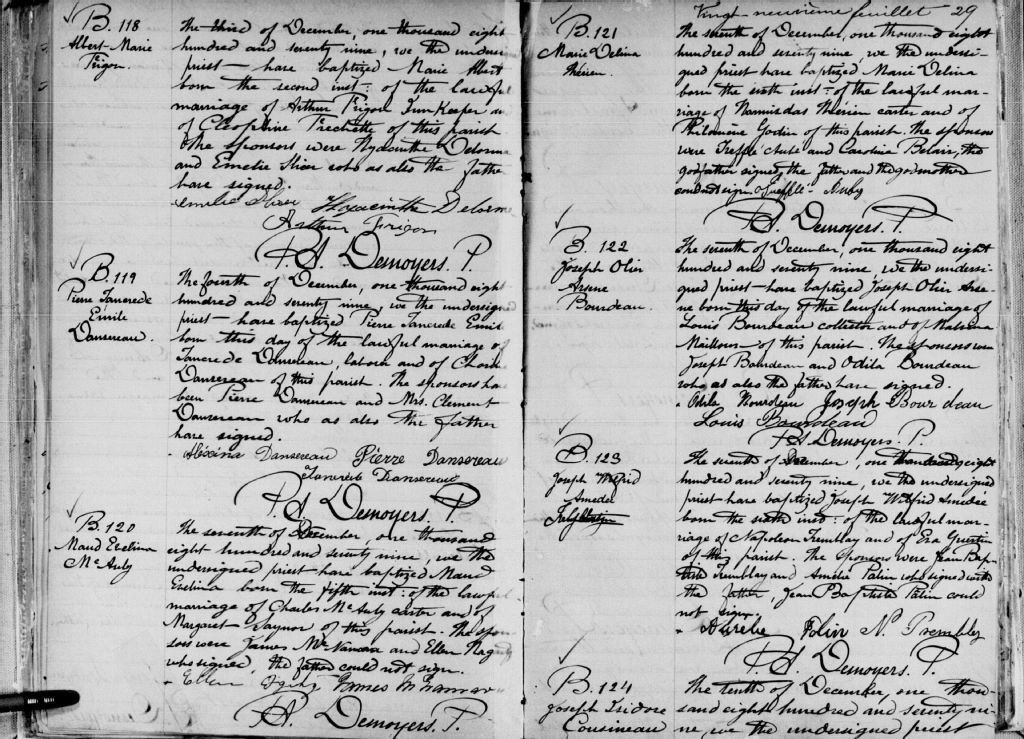 B. 118
Albert Marie
Frigon.
The third of December, one thousand eight
hundred and seventy nine, we the undersi
priest have baptized Marie Albert
born the second inst: of the lawful
marriage of Arthur Frigon Inn Keeper an
of Cleophire Frechette of this parish
The sponsors were Hyacinthe Delorme
and Emelie who as also the father
have signed.
Emelie Hyacinthe Delorme
Arthur Frigon
P. A. Demoyers. P.
B. 119
Pierre Tancrede
Emile
Dansereau.
The fourth of December, one thousand eight
hundred and seventy nine, we the undersign
priest have baptized Pierre Tancrede Emile
born this day of the lawful marriage of
Tancrede Dansereau, and of
Dansereau of this parish. The sponsors ha
been Pierre Dansereau and Mrs. Clement
Dansereau who as also the father
have signed.
Aléxina Dansereau Pierre Dansereau
Tancrède Dansereau
P. A. Demoyers. P.
B. 120
Maud Evelina
Mc Auly
The seventh of December, one thousand
eight hundred and seventy nine, we the
undersigned priest have baptized Maud
Evelina born the fifth inst: of the lawful
marriage of Charles Mc Auly carter and of
Margaret Saynor of this parish. The spon
sors were James Mc Namara and Ellen Nag
who signed, the father could not sign.
Ellen James McNamara
P. A. Demoyers. P.
Vingt-neuvième feuillet 29
B. 121
Marie Delina
Thérien.
The seventh of December, one thousand eight
hundred and seventy nine, we the undersi-
gned priest have baptized Marie Delina
born the sixth inst: of the lawful mar-
riage of Thérien carter and of
Philomène Godin of this parish. The sponsors
were Trefflé and Caroline Belair, the
godfather signed, the father and the godmother
could not sign. Trefflé
P. A. Demoyers P.
B. 122
Joseph Olin
Arsene
Bourdeau.
The seventh of December, one thousand eight
hundred and seventy nine, we the undersi-
gned priest have baptized Joseph Olin Arse
ne born this day of the lawful marriage of
Louis Bourdeau collector and of
of this parish. The sponsors were
Joseph Bourdeau and Odila Bourdeau
who as also the father have signed.
Odila Bourdeau Joseph Bourdeau
Louis Bourdeau
P. A. Demoyers. P.
B. 123
Joseph Wilfrid
Amedee
The seventh of December, one thousand eight
hundred and seventy nine, we the undersigned
priest have baptized Joseph Wilfrid Amédée
born the sixth inst: of the lawful mar-
riage of Napoleon Tremblay and of Eva
of this parish. The sponsors were Jean Bap
tiste Tremblay and Amelie Patin who signed with
the father, Jean Baptiste Patin could
not sign.
Aurelie N. Trembley
P. A. Demoyers. P.
B. 124
Joseph Isidore
Cousineau
The tenth of December, one thou-
sand eight hundred and seventy ni-
ne, we the undersigned priest